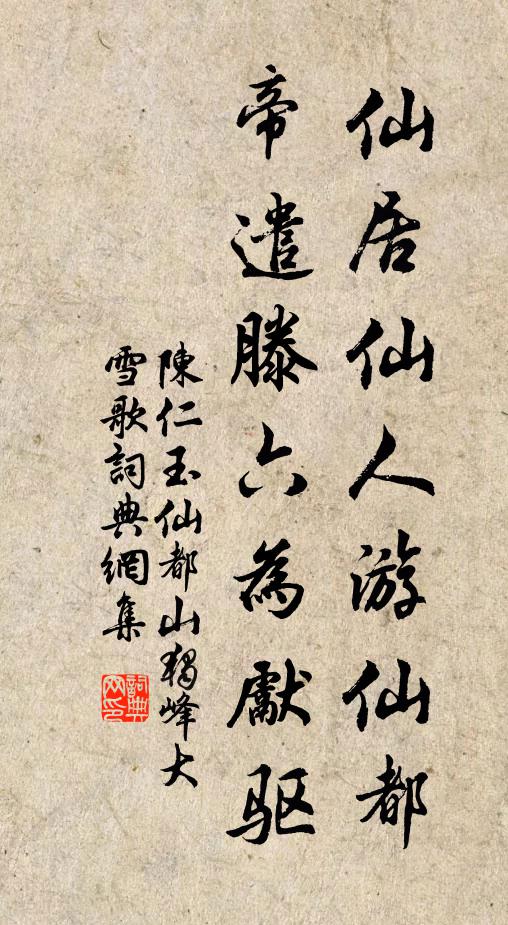 仙居仙人游仙都
帝遣滕六為獻驱
陳仁玉仙都山獨峰大
雪歌詞典網集
詞典
网印